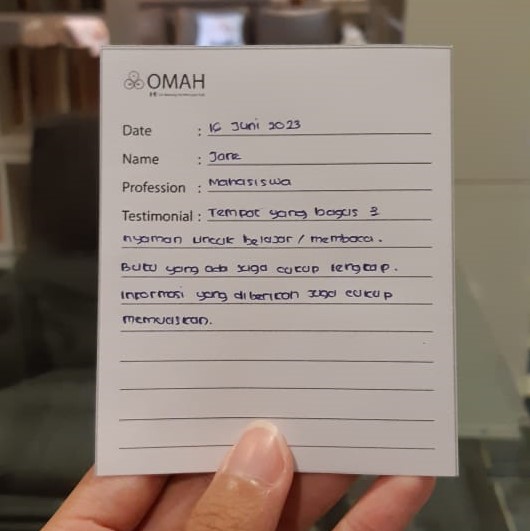 OMAH
Date : 16 Juni 2023
Name : Jane
Profession : Mahasiswa
Testimonial : Tempat yang bagus &
nyaman untuk belajar / membaca.
Buku yang ada juga cukup lengkap.
Informasi yang diberikan juga cukup
memuaskan.